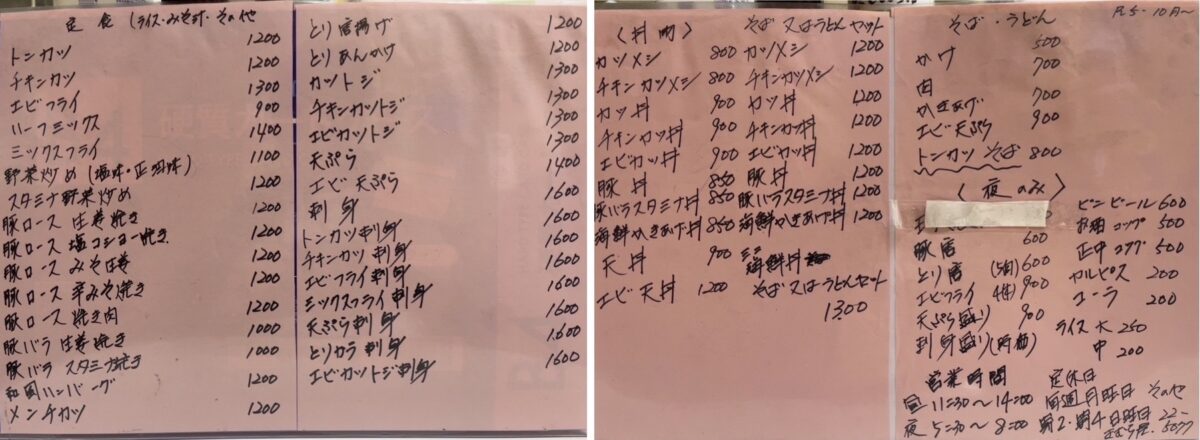 定食(ライス・みそ汁・その他
トンカツ 1200
チキンカツ 1200
エビフライ 1300
ハーフミックス 900
ミックスフライ 1400
野菜炒め(塩味・正油味) 1100
スタミナ野菜炒め 1200
豚ロース 生姜焼き 1200
豚ロース 塩コショー焼き 1200
豚ロース みそ生姜 1200
豚ロース 辛みそ焼き 1200
豚ロース 焼き肉 1200
豚バラ 生姜焼き 1000
豚バラ スタミナ焼き 1000
和風ハンバーグ 1200
メンチカツ 1200
とり唐揚げ 1200
とりあんかけ 1200
カツトジ 1300
チキンカツトジ 1300
エビカツトジ 1300
天ぷら 1300
エビ天ぷら 1400
刺身 1600
トンカツ刺身 1600
チキンカツ刺身 1600
エビフライ刺身 1600
ミックスフライ刺身 1600
天ぷら刺身 1600
とりカラ刺身 1600
エビカツトジ刺身 1600
〈丼物〉 そば又はうどんセット
カツメシ 800 カツメシ 1200
チキンカツメシ 800 チキンカツメシ 1200
カツ丼 900 カツ丼 1200
チキンカツ丼 900 チキンカツ丼 1200
エビカツ丼 900 エビカツ丼 1200
豚丼 850 豚丼 1200
豚バラスタミナ丼 850 豚バラスタミナ丼 1200
海鮮かきあげ丼 850 海鮮かきあげ丼 1200
天丼 900 ミニ海鮮丼
エビ天丼 1200 そば又はうどんセット
1300
そば・うどん R5・10月〜
かけ 500
肉 700
かきあげ 700
エビ天ぷら 900
トンカツそば 800
〈夜のみ〉
豚唐 600
とり唐 (5個) 600
エビフライ 4本 900
天ぷら盛り 900
刺身盛り(時価)
ビンビール 600
お酒コップ 500
正中コップ 500
カルピス 200
コーラ 200
ライス 大 250
中 200
営業時間
昼 11:30〜14:00
夜 5:30〜8:00
定休日
毎週月曜日 その他
第2・第4日曜日
22-5077